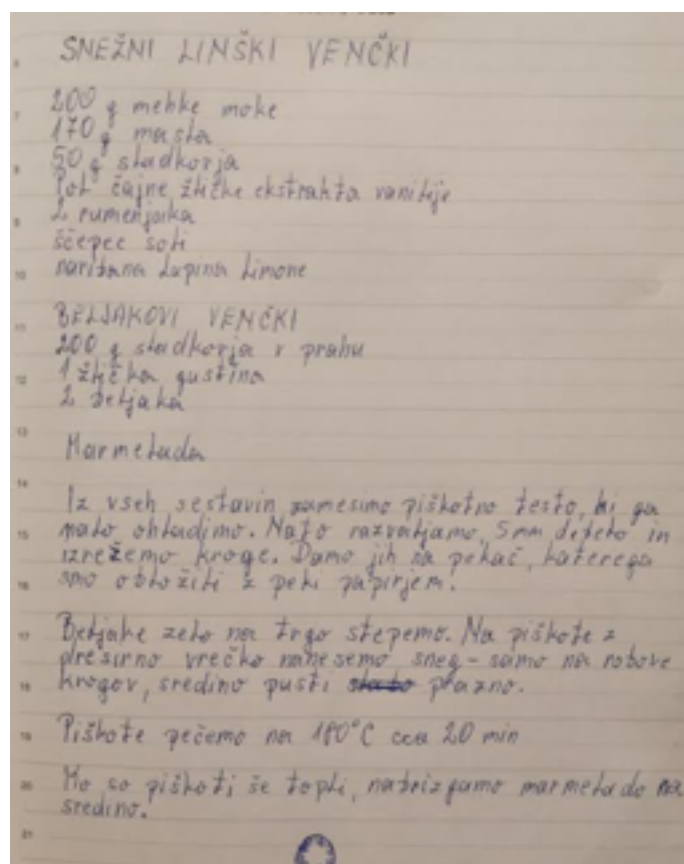 SNEŽNI LINŠKI VENČKI
200 g mehke moke
170 g masla
50 g sladkorja
Pol čajne žličke ekstrakta vanilije
2 rumenjaka
ščepec soli
naribana lupina limone
BELJAKOVI VENČKI
200 g sladkorja v prahu
1 žlička gustina
2 beljaka
Marmelada
Iz vseh sestavin zamesimo piškotno testo, ki ga
malo ohladimo. Nato razvaljamo, 5mm debelo in
izrežemo kroge. Damo jih na pekač, katerega
smo obložili z peki papirjem.
Beljake zelo na trgo stepemo. Na piškote z
dresirno vrečko nanesemo sneg - samo na robove
krogov, sredino pusti prazno.
Piškote pečemo na 180°C cca 20 min
Ko so piškoti še topli, nabrizgamo marmelado na
sredino.
6
7
8
9
10
11
12
13
14
15
16
17
18
19
20
21